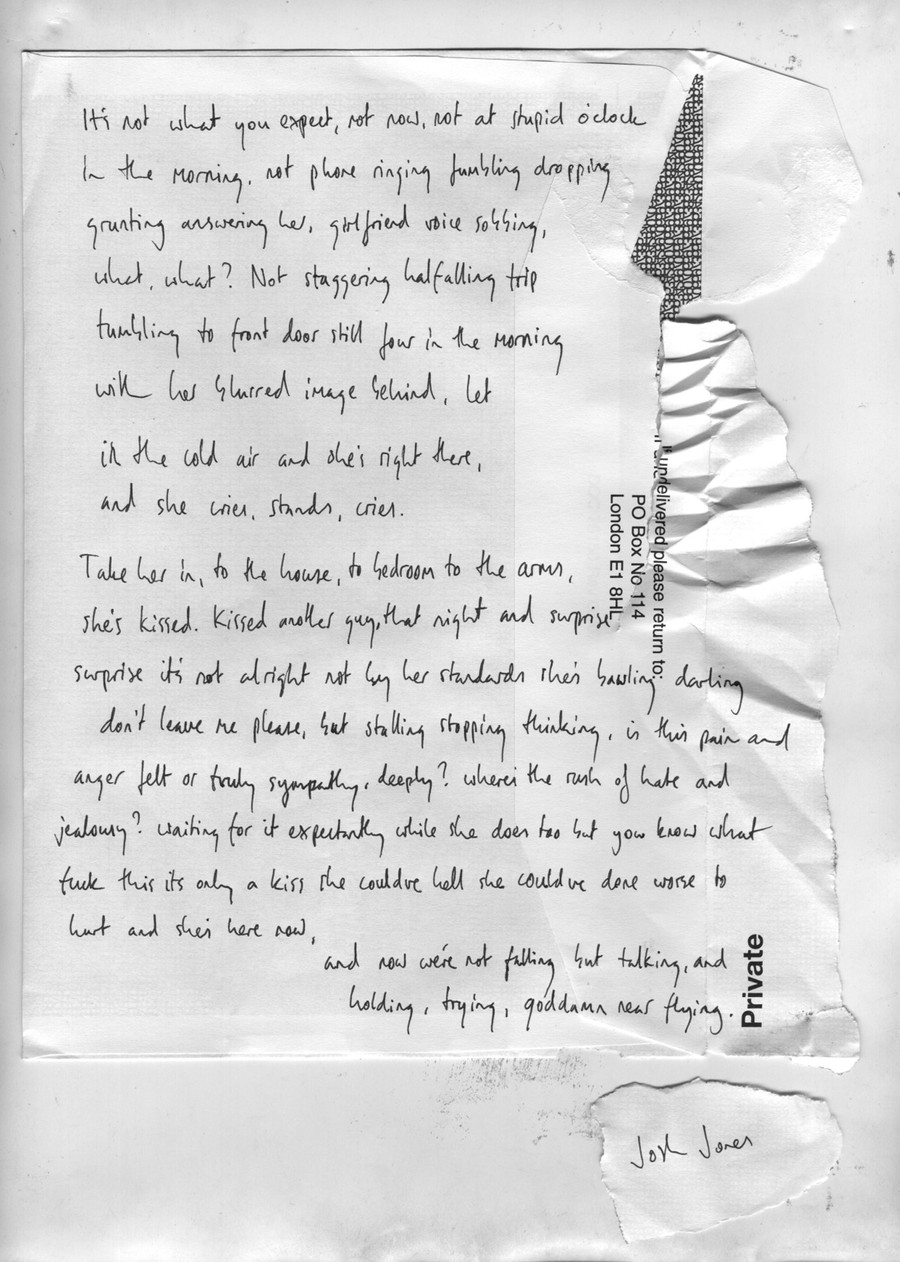 It's not what you expect, not now, not at stupid o'clock
in the morning, not phone ringing fumbling dropping
grunting answering her, girlfriend voice sobbing,
what, what? Not staggering halfalling trip
tumbling to front door still four in the morning
with her blurred image behind, let
in the cold air and she's right there,
and she cries, stands, cries.
Take her in, to the house, to bedroom to the arms,
she's kissed. Kissed another guy, that night and surprise
surprise it's not alright not by her standards she's bawling darling
don't leave me please, but stalling stopping thinking, is this pain and
anger felt or truly sympathy, deeply? where's the rush of hate and
jealousy? waiting for it expectantly while she does too but you know what
fuck this its only a kiss she couldve hell she couldve done worse to
hurt and she's here now,
and now we're not falling but talking, and
holding, trying, goddamn near flying.
If undelivered please return to:
PO Box No 114
London E1 8HL
Private
Josh Jones